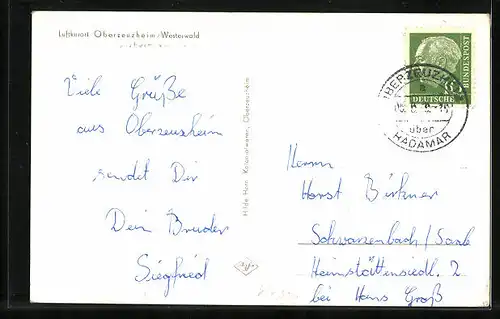 Luftkurort Oberzeuzheim/Westerwald
Viele Grüße
aus Oberzeusheim
sendet Dir
Dein Bruder
Siegfried
Hilde Horn Kolonialwaren, Oberzeuzheim
DEUTSCHE
BUNDESPOST
OBERZEUZHEIM
über
HADAMAR
Herrn
Horst Birkner
Schwarzenbach/Saale
Heimstättensiedl. 2
bei Hans Groß